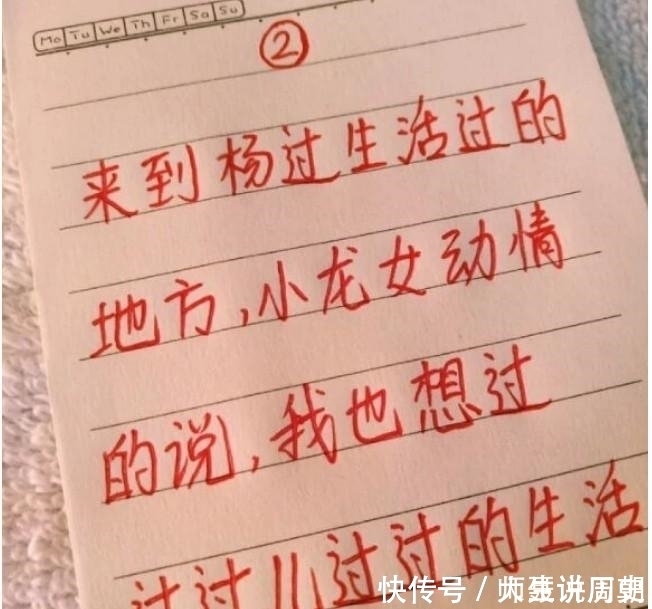 Mo Tu We Th Fr Sa Su
②
来到杨过生活过的
地方,小龙女动情
的说,我也想过
过过儿过过的生活
快传号/
说周